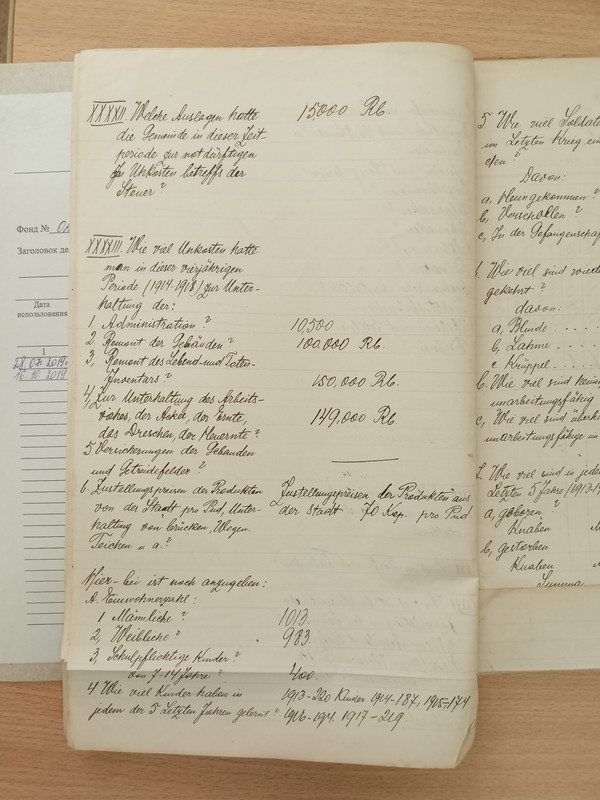 XXXXII. Welche Auslagen hatte 15000 Rb.
die Gemeinde in dieser Zeit-
periode zur notdürftigen
Unkosten betreffs der
Steuer?
XXXXIII. Wie viel Unkosten hatte
man in dieser vierjährigen
Periode (1914-1918) zur Unter-
haltung der:
1 Administration? 10,500
2. Remont der Gebäuden? 100.000 Rb.
3, Remont des Lebend-und Toten-
Inventars? 150,000 Rb.
4, Zur Unterhaltung des Arbeits-
viehes, der Acker, der Ernte, 149,000 Rb.
das Dreschen, der Heuernte?
5. Versicherungen der Gebäuden
und Getreidefelder?
6. Zustellungspreisen der Produkten Zustellungspreisen der Produkten aus
von der Stadt pro Pud, Unter- der Stadt 70 Kop. pro Pud.
haltung von Brücken, Wegen
Teichen u a?
Hier-bei ist noch anzugeben:
A. Einwohnerzahl:
1 Männliche? 1013.
2, Weibliche? 983
3, Schulpflichtige Kinder?
von 7-14 Jahre? 400.
4 Wie viel Kinder haben in 1913-220 Kinder 1914-187, 1915-174
jedem der 5 Letzten Jahren gelernt? 1916-194. 1917-219.
5 Wie viel Soldate
im Letzten Krieg ein
den?
Davon:
a,
b, Verschollen?
c, In der Gefangenschaf
Wie viel sind
gekehrt?
davon:
a, Blinde . . . .
b, Lahme . . . .
c Krüppel . . .
b. Wie viel sind
unarbeitungsfähig
c, Wie viel sind
Wie viel sind in jede
Letzten 5 Jahre (1913-1
a, geboren?
Knaben
b, gestorben
Knaben
Summa
Фонд №
Заголовок де
Дата
использования
1
28.07.2019г
16.10.2019